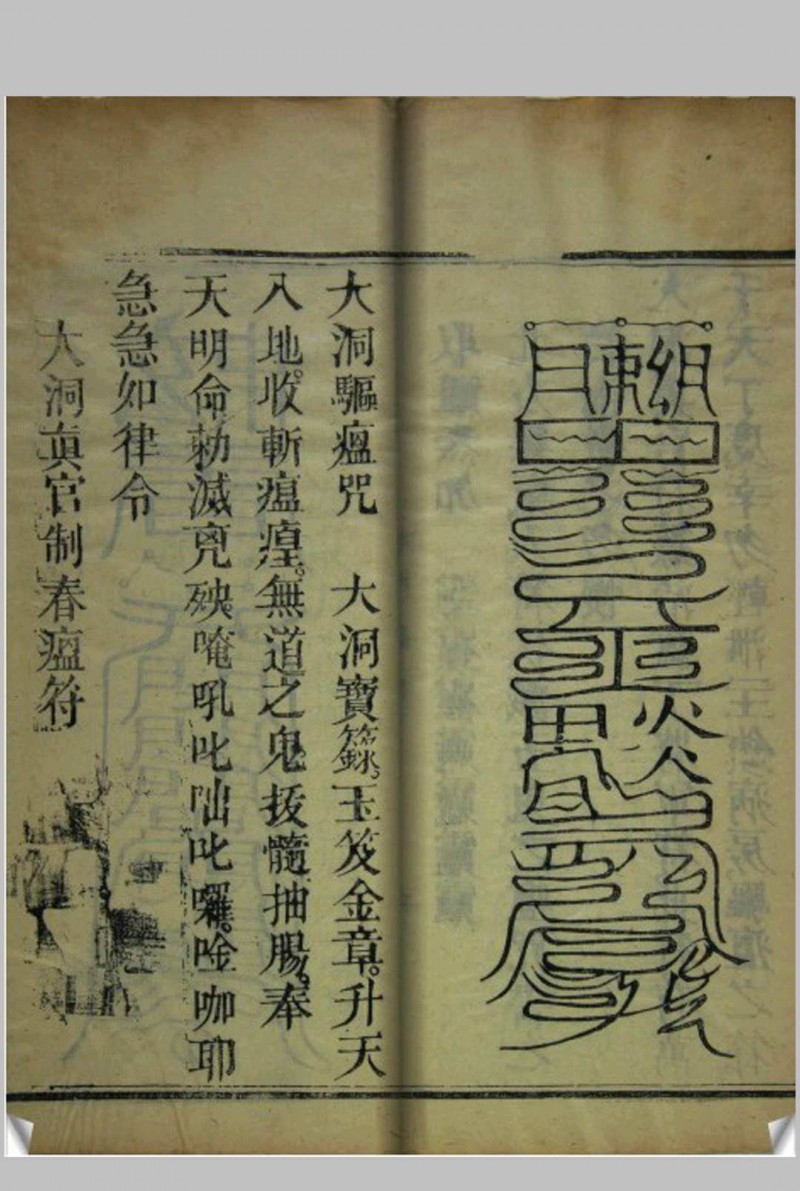 大洞驅瘟咒　大洞寶籙。玉笈金章。升天
入地。收斬瘟㾮。無道之鬼。拔髓抽腸。奉
天明命。勑滅兇殃。唵吼叱咄叱囉。唫咖耶
急急如律令
大洞真官制春瘟符